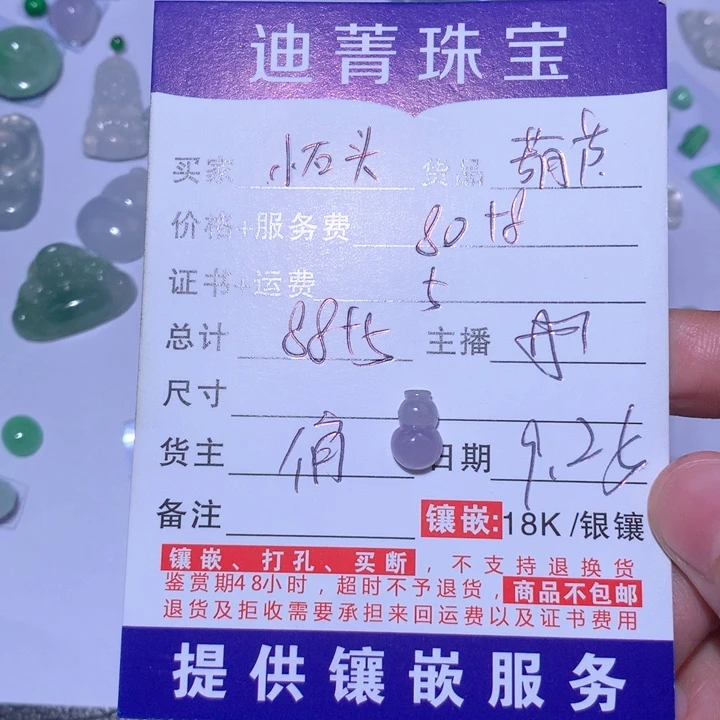 迪菁珠宝
买家 小石头 货品 葫芦
价格+服务费 80+8
证书+运费 5
总计 88+5 主播
尺寸
货主 日期 9.26
备注 镶嵌:18K/银镶
镶嵌、打孔、买断，不支持退换货
鉴赏期48小时，超时不予退货，商品不包邮
退货及拒收需要承担来回运费以及证书费用
提供镶嵌服务